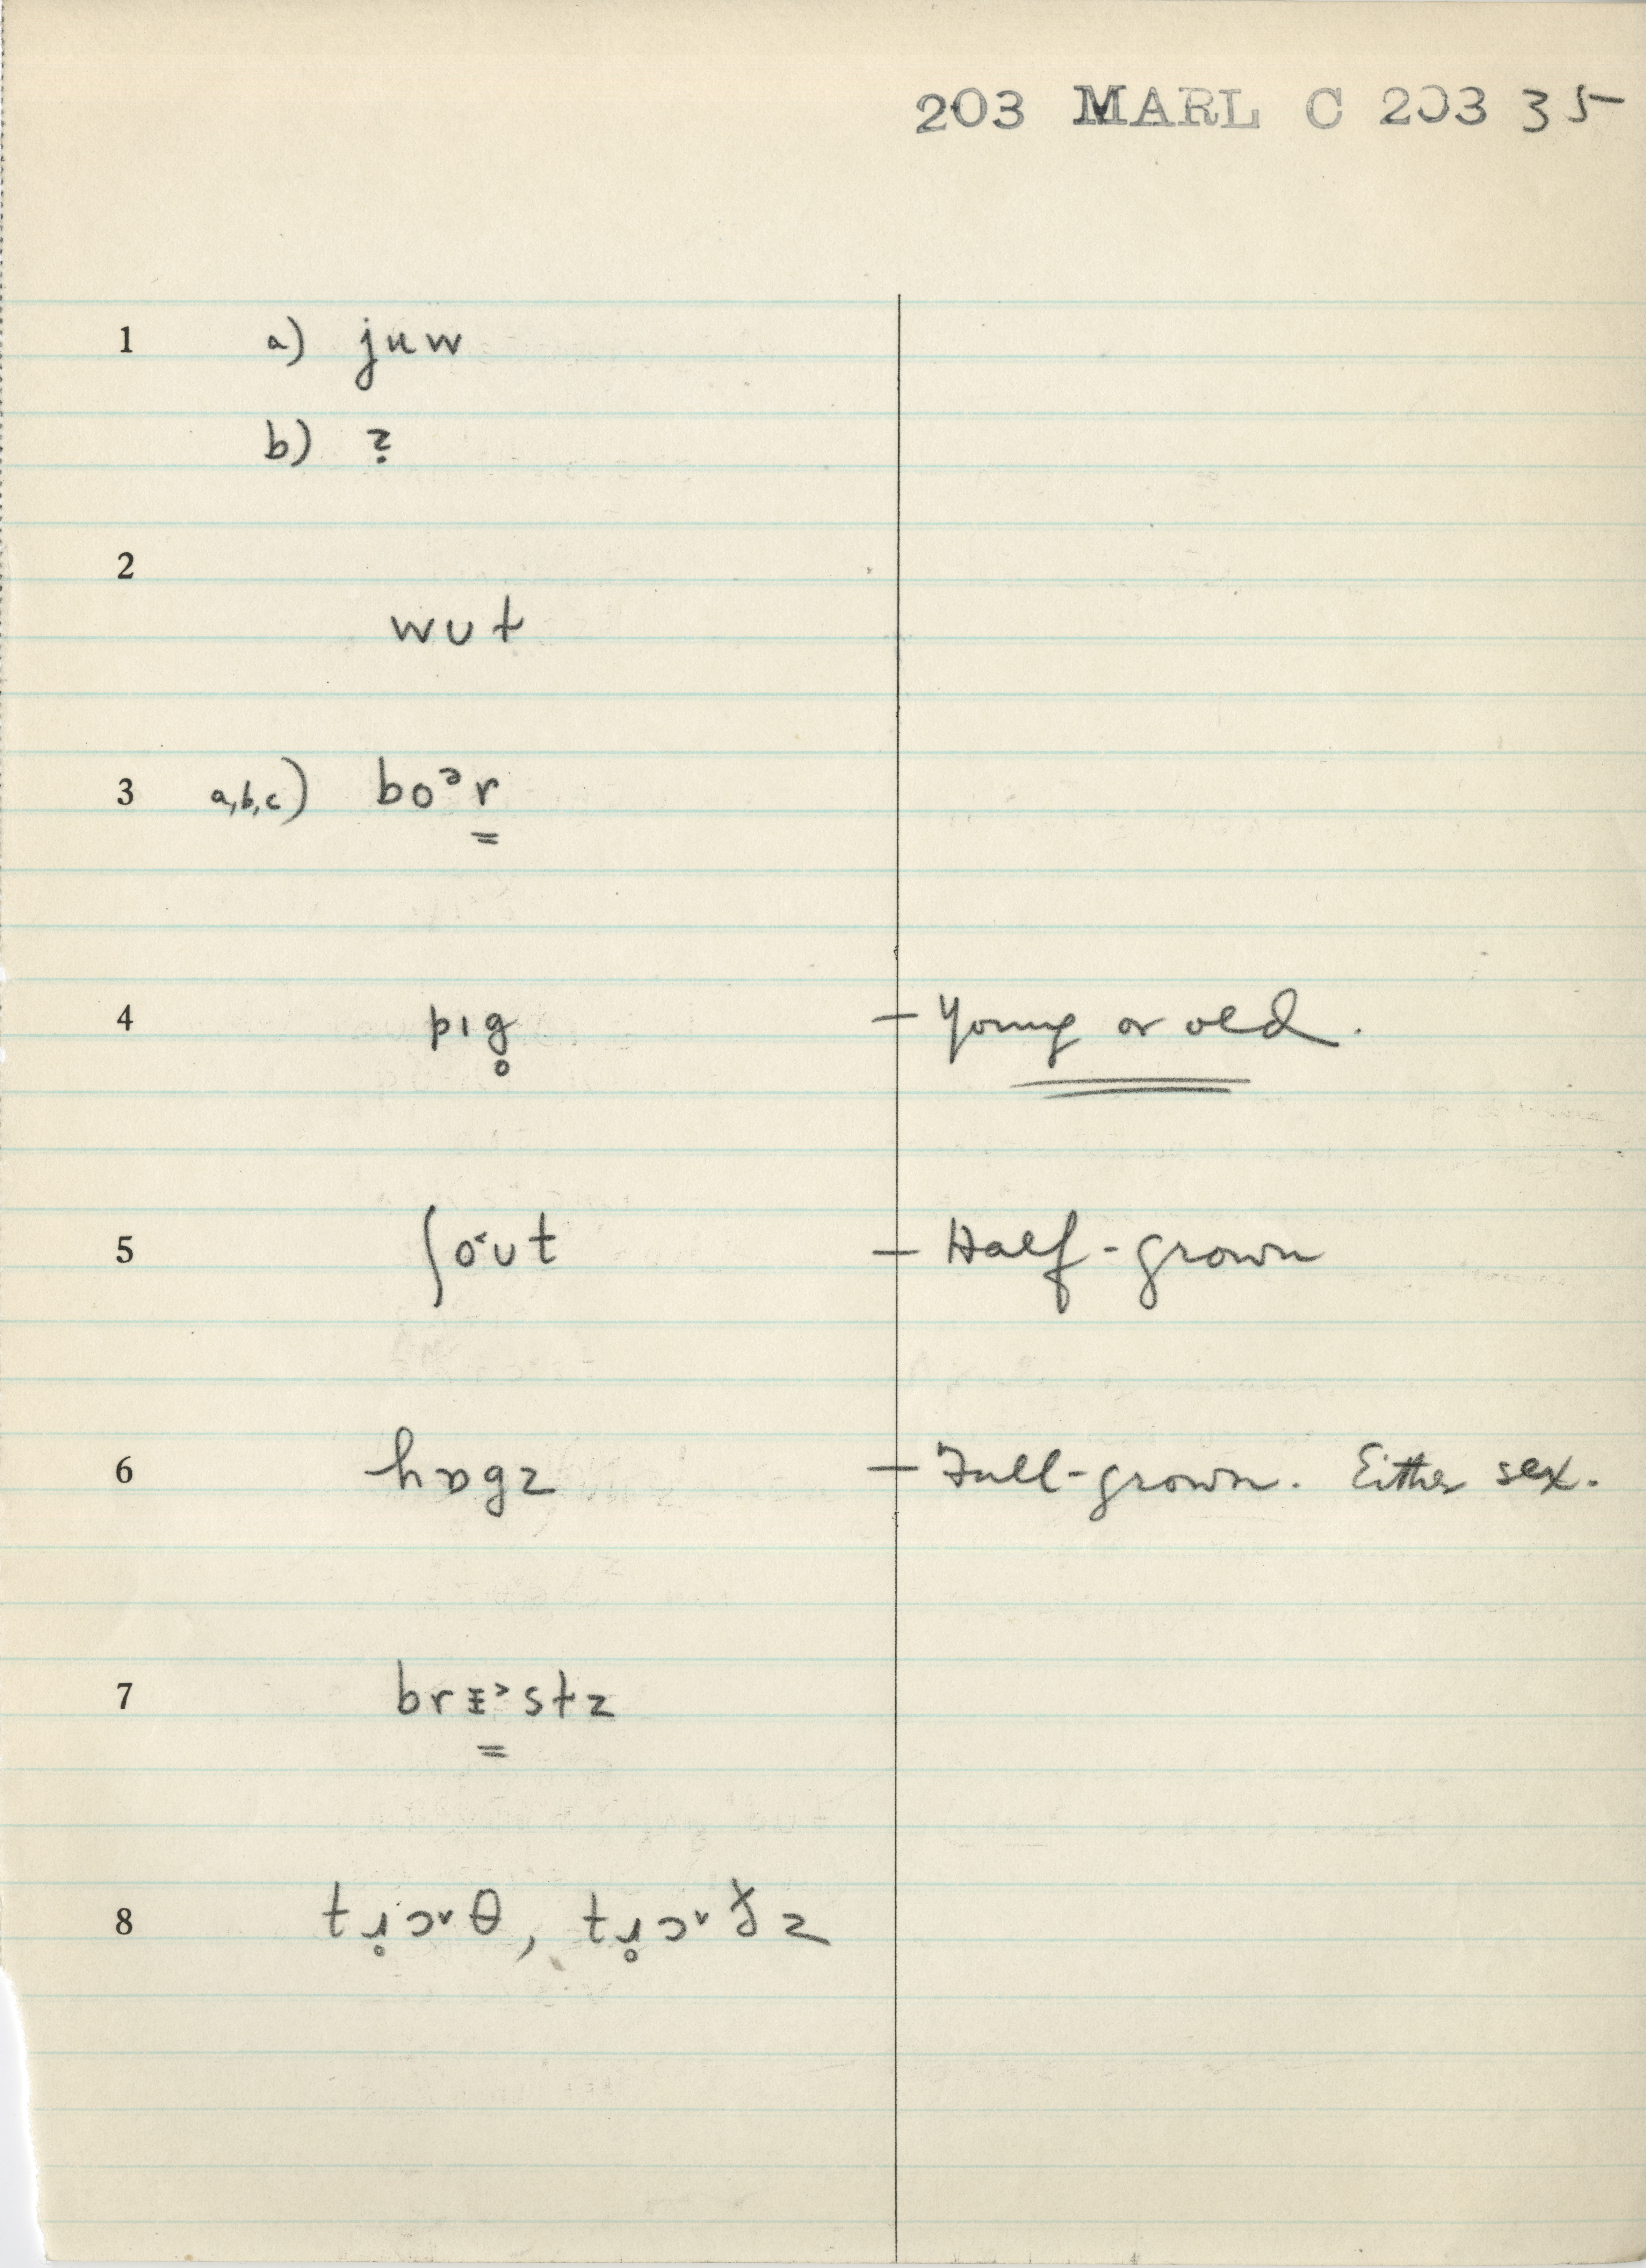 203 MARL C 203 35
1 a) juw
b) ?
2
wʊt
3 a,b,c) boᵊr̳
4 pɪg̥ — Young or old.
5 ʃo˂ʊt — Half-grown
6 hɒgz — Full-grown. Either sex.
7 brᵻ̳˃stz
8 tɹ̥ɔ˅θ, tɹ̥ɔ˅ðz